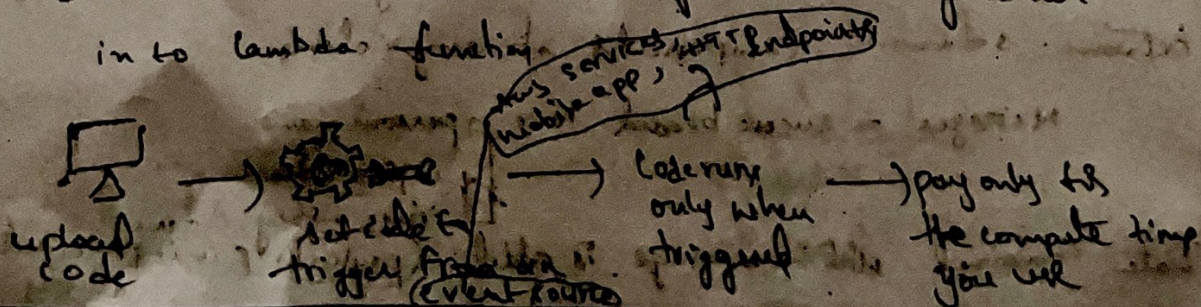 in to lambda function
AWS services, HTTP Endpoints
mobile app,
upload
code
set code to
trigger from an
event source
Code runs
only when
triggered
pay only for
the compute time
you use